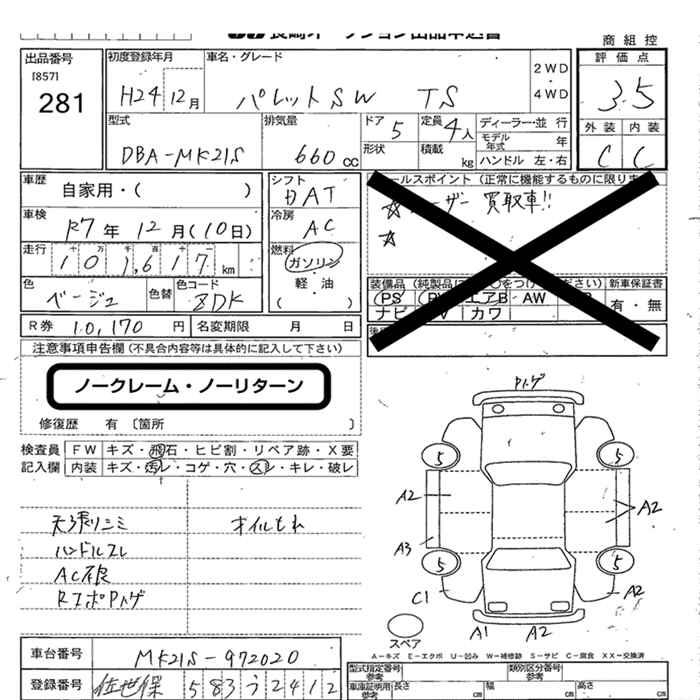 商組控
出品番号 初度登録年月 車名・グレード 評価点
[857] 2WD
281 H24 12月 パレットSW TS 4WD 3.5
型式 排気量 ドア 5 定員 4人 ディーラー・並行 外装 内装
モデル年式 年
DBA-MK21S 660cc 形状 積載 kg ハンドル 左・右 C C
車歴 自家用・( ) シフト セールスポイント(正常に機能するものに限ります)
AT ☆ユーザー買取車!!
車検 R7年 12月(10日) 冷房 AC ☆
走行 十 万 千 百 十 一 燃料
101,617km ガソリン
軽・油
( )
色 ベージュ 色替 色コード ZDK
装備品(純製品に○をつけてください) 新車保証書
PS PW エアB AW 有・無
ナビ TV カワ
R券 10,170円 名変期限 月 日
注意事項申告欄(不具合内容等は具体的に記入して下さい)
ノークレーム・ノーリターン
修復歴 有 〔箇所 〕
検査員 FW キズ・飛石・ヒビ割・リペア跡・X要
記入欄 内装 キズ・汚レ・コゲ・穴・スレ・キレ・破レ
天張リシミ オイルもれ
ハンドルスレ
AC不良
RエボPハゲ
Pハゲ
5 5
A2 A2
A3
5 5
C1 A2
A1 A2
スペア
A－キズ E－エクボ U－凹み W－補修跡 S－サビ C－腐食 XX－交換済
車台番号 MK21S-972020
型式指定番号 参考 類別区分番号 参考
登録番号 佐世保 583 う 2412
車庫証明用 参考 長さ cm 幅 cm 高さ cm